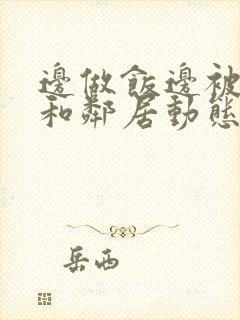 邊做飯邊被
和鄰居動態
岳西